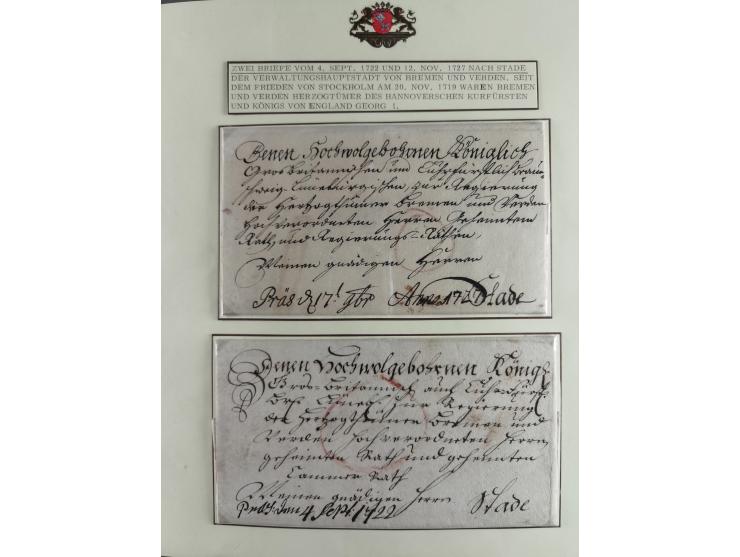 ZWEI BRIEFE VOM 4. SEPT. 1722 UND 12. NOV. 1727 NACH STADE
DER VERWALTUNGSHAUPTSTADT VON BREMEN UND VERDEN. SEIT
DEM FRIEDEN VON STOCKHOLM AM 20. NOV. 1719 WAREN BREMEN
UND VERDEN HERZOGTÜMER DES HANNOVERSCHEN KURFÜRSTEN
UND KÖNIGS VON ENGLAND GEORG 1.
Denen Hochwolgebohrnen Königlich
Grosbritannischen und Churfürstlich Braun-
schweig-Lüneburgischen, zur Regierung
der Herzogthümer Bremen und Verden
Hochverordneten Herren Geheimten
Rath und Regierungs-Räthen,
Meinen gnädigen Herren
Stade
Denen Hochwolgebohrnen Königl.
Gros-Britannisch auch Churfürstl.
Lüneb. zur Regierung
der Herzogthümer Bremen und
Verden hochverordneten Herrn
geheimten Rath und geheimten
Cammer Rath
Meinen gnädigen Herrn
4 Sept. 1722
Stade